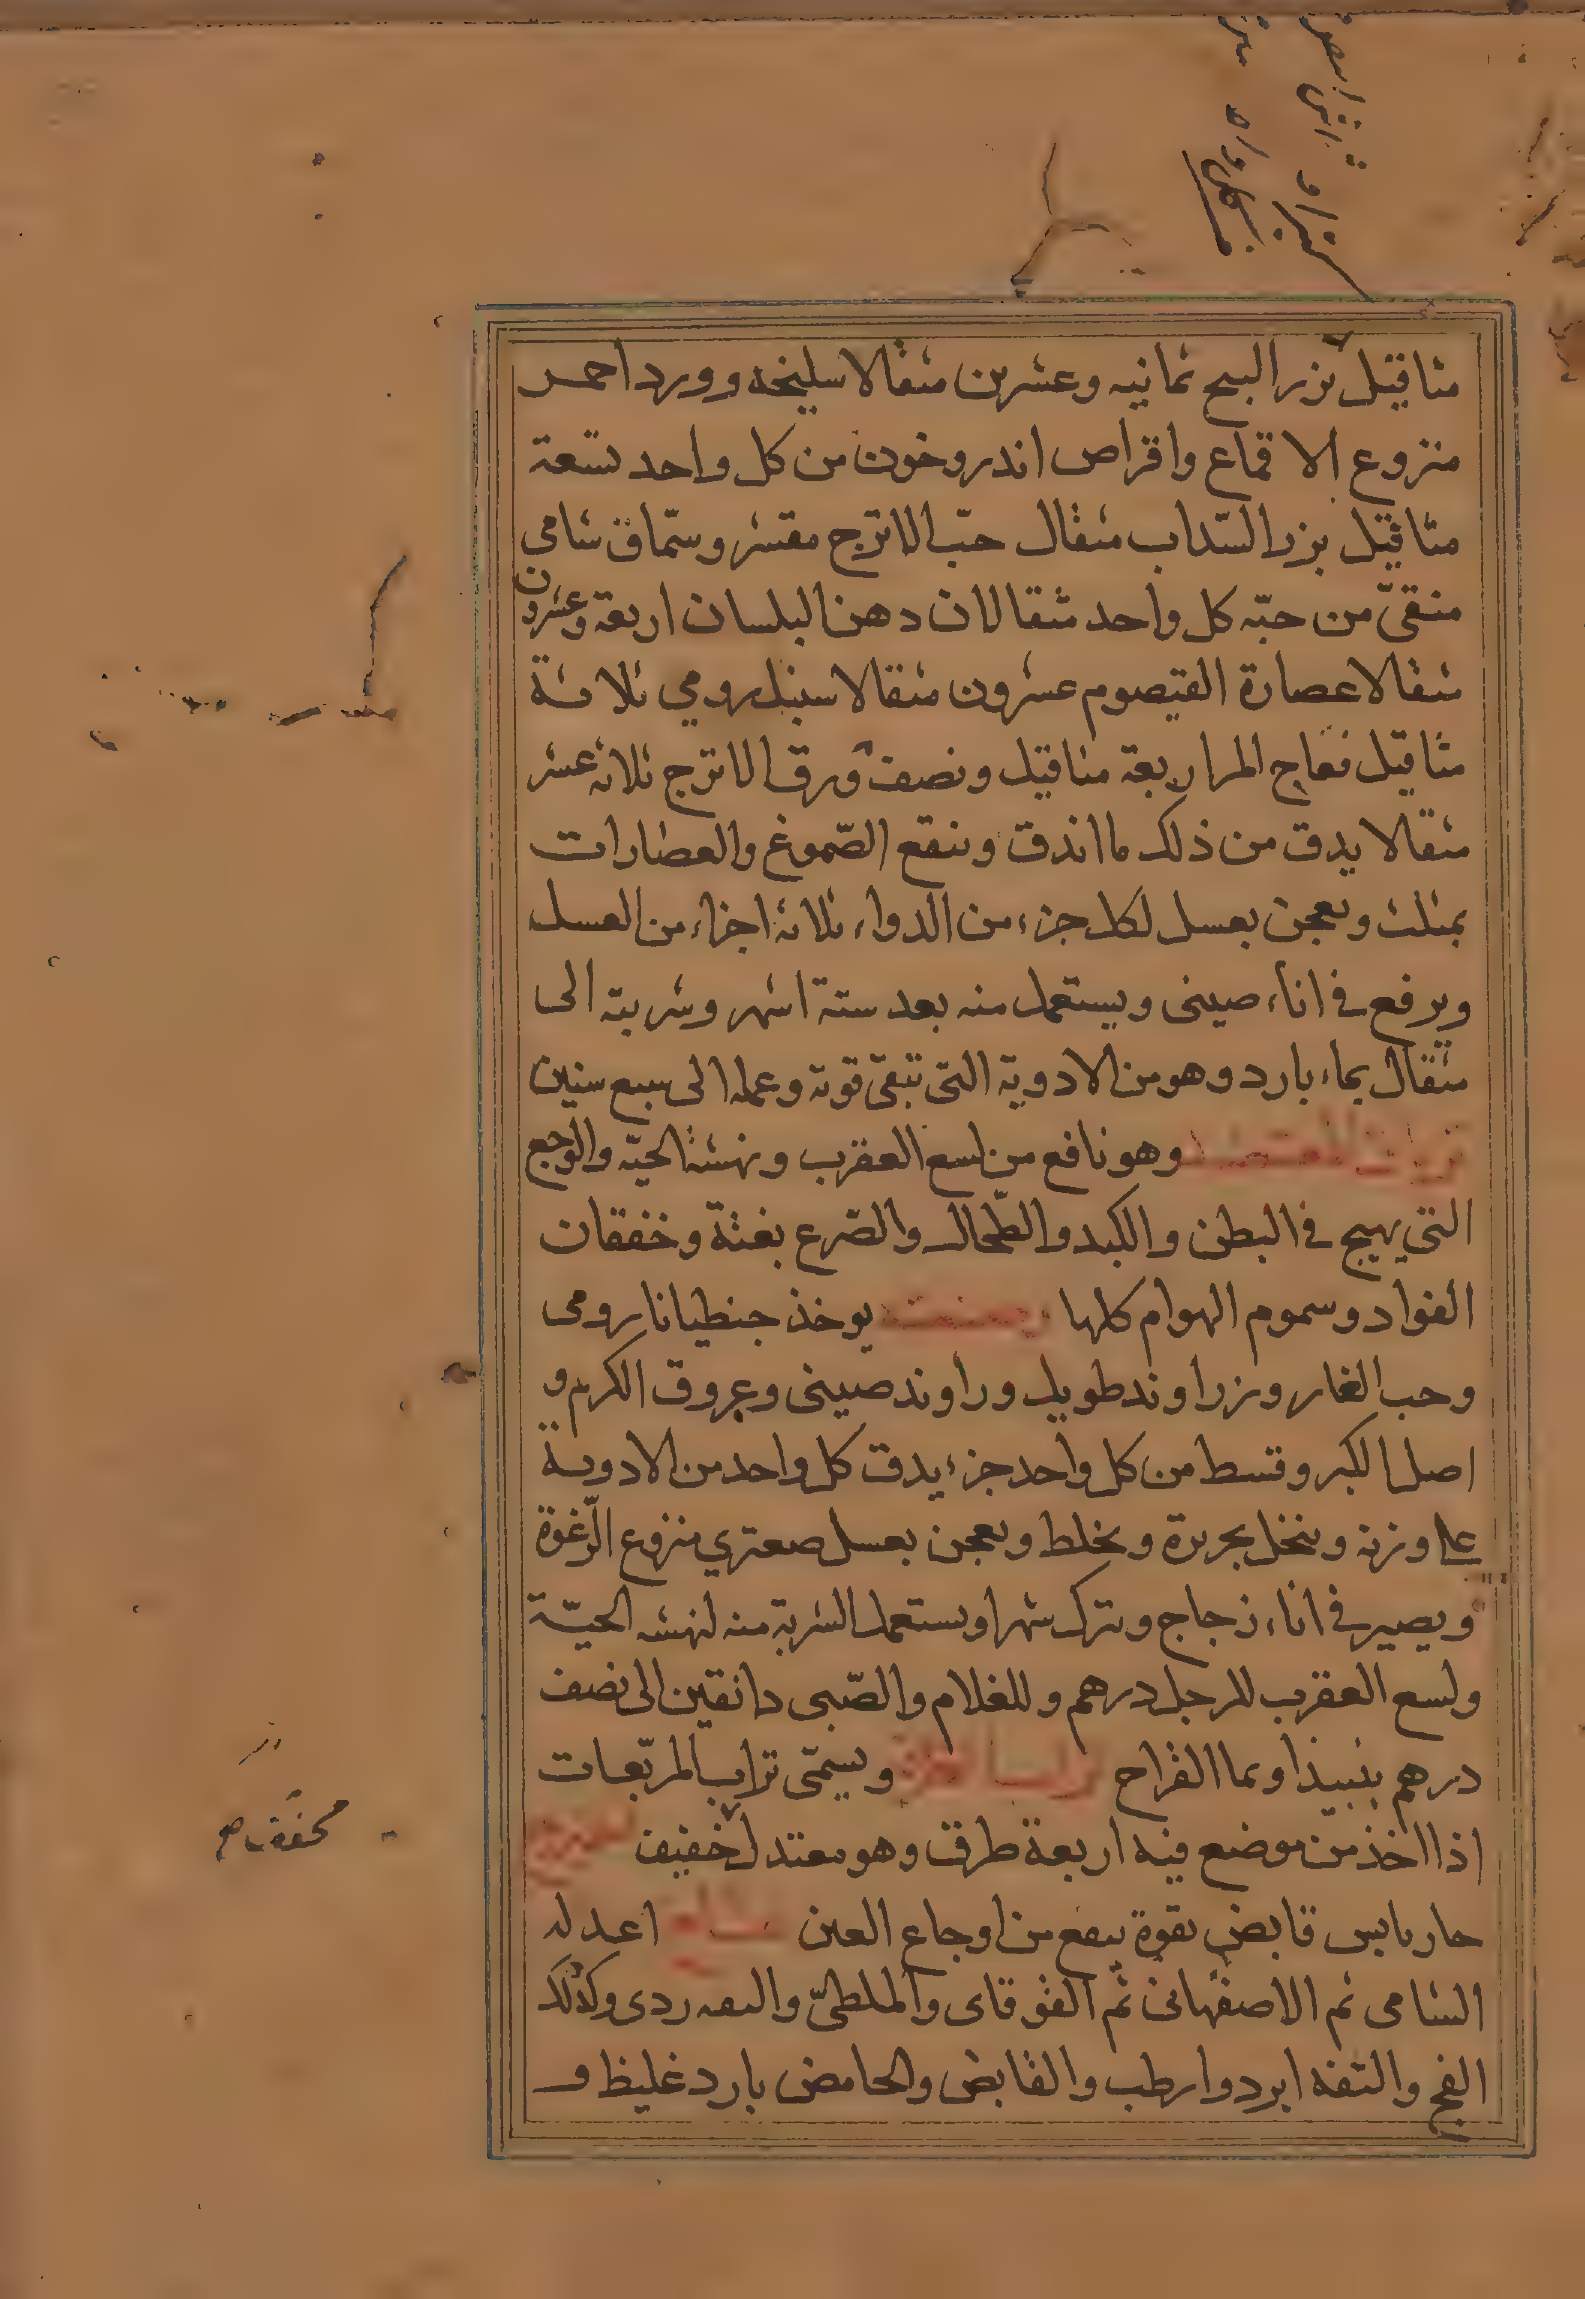 مثاقيل بزر البنج ثمانيه وعشرين مثقالا سليخه وورد احمر
منزوع الاقماع واقراص اندروخون من كل واحد تسعة
مثاقيل بزر السّداب مثقال حبّ الاترج مقشر وسمّاق شامى
منقىّ من حبّه كل واحد مثقالان دهن البلسان اربعة وعشرون
مثقالا عصارة القيصوم عشرون مثقالا سنبل رومي ثلاثة
مثاقيل فقاح المر اربعة مثاقيل ونصف ورق الاترج ثلاثه عشر
مثقالا يدق من ذلك ما اندق وينقع الصّموغ والعصارات
بمثلث ويعجن بعسل لكل جزء من الدواء ثلاثة اجزاء من العسل
ويرفع فى اناء صينى ويستعمل منه بعد ستة اشهر وشربته الى
مثقال بماء بارد وهو من الادوية التى تبقى قوته وعمله الى سبع سنين
وهو نافع من لسع العقرب ونهشة الحيّه والوجع
التي يهيج فى البطن والكبد والطّحال والصّرع بغتة وخفقان
الفواد وسموم الهوام كلها وصنعته يوخذ جنطيانا رومى
وحب الغار وزراوند طويل وراوند صينى وعروق الكرم و
اصل الكبر وقسط من كل واحد جزء يدق كل واحد من الادوية
على وزنه وينخل بحريرة ويخلط ويعجن بعسل صعتري منزوع الرّغوة
ويصير فى اناء زجاج ويترك شهرا ويستعمل الشربة منه لنهشه الحيّة
ولسع العقرب للرجل درهم وللغلام والصّبى دانقين الى نصف
درهم بنبيذ او بما القراح ويسمّى تراب المربّعات
اذا اخذ من موضع فيه اربعة طرق وهو معتدل خفيف
حار يابس قابض بقوة ينفع من اوجاع العين اعدله
الشامى ثم الاصفهانى ثم القوقاى والملطىّ والتفه ردى وكذلك
الفج والتفه ابرد وارطب والقابض والحامض بارد غليظ و
مجفف صح